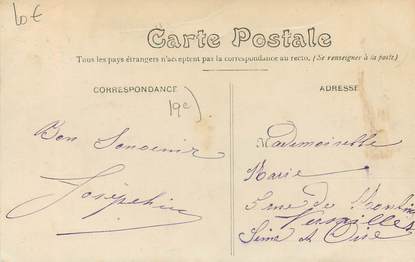 10€
Carte Postale
Tous les pays étrangers n'acceptent pas la correspondance au recto, (Se renseigner à la poste)
CORRESPONDANCE
19e)
Bon Souvenir
Joséphine
ADRESSE
Mademoiselle
Marie
rue de
Versailles
Seine et Oise